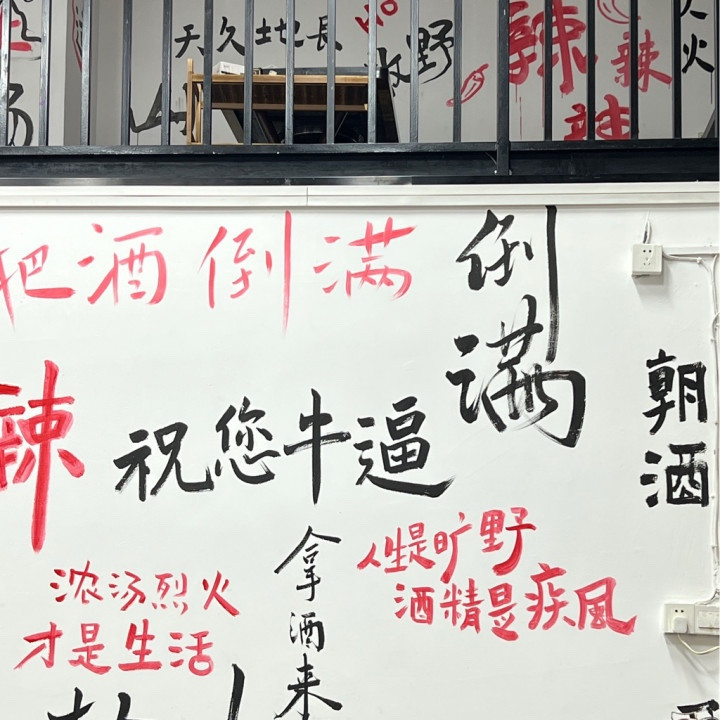 天久地長
牧野
辣
辣
辣
火
汤
把酒倒满
倒满
辣
祝您牛逼
朝酒
拿酒来
人生是旷野
酒精是疾風
浓汤烈火
才是生活